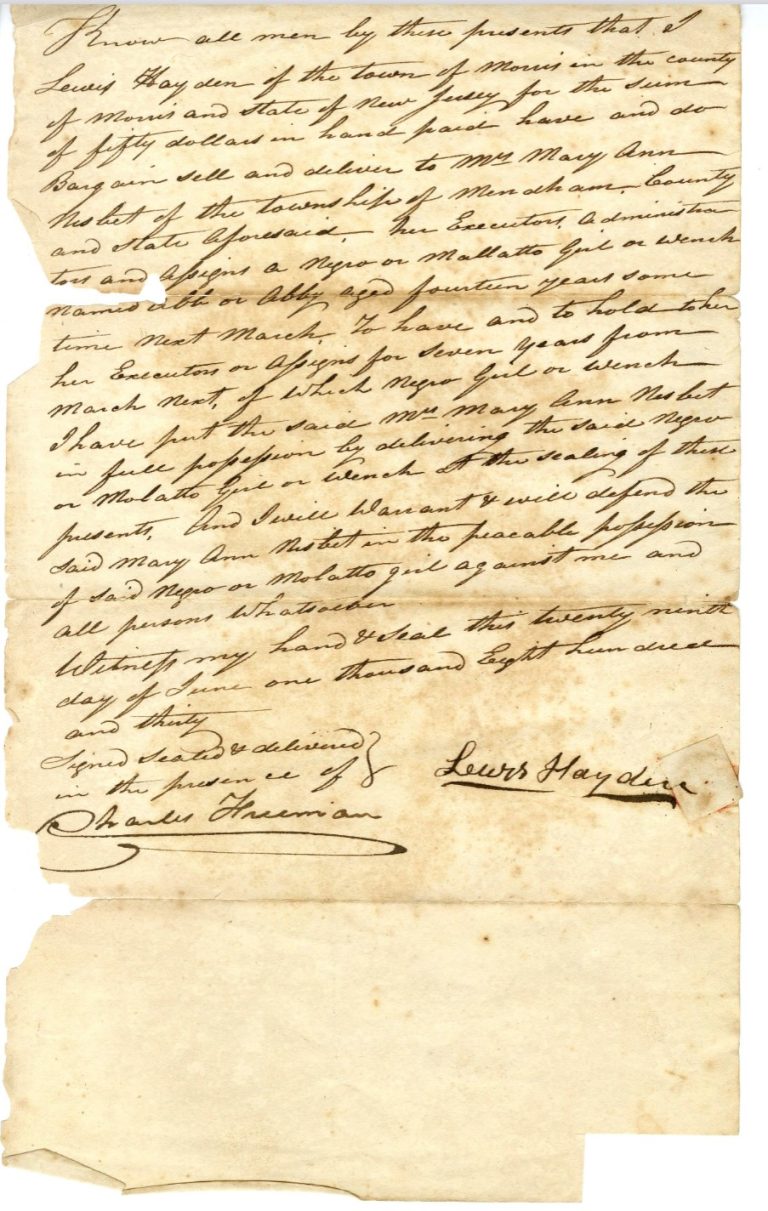 Know all men by these presents that I
Lewis Hayden of the town of Morris in the county
of Morris and state of New Jersey for the sum
of fifty dollars in hand paid have and do
Bargain sell and deliver to Mrs Mary Ann
Nesbet of the township of Mendham, County
and state Aforesaid, her Executors, Administra
tors and Assigns a Negro or Mallatto Girl or Wench
named or Abby aged fourteen years some
time next March, To have and to hold to her
her Executors or Assigns for Seven Years from
March next, of Which Negro Girl or Wench
I have put the said Mrs Mary Ann Nesbet
in full possession by delivering the said Negro
or Molatto Girl or Wench at the sealing of these
presents, And I will Warrant & will defend the
said Mary Ann Nesbet in the peacable possession
of said Negro or Molatto girl against me and
all persons Whatsoever
Witness my hand & Seal this twenty ninth
day of June one thousand Eight hundred
and thirty
Signed Sealed & delivered
in the presence of
Charles Freeman
Lewis Hayden